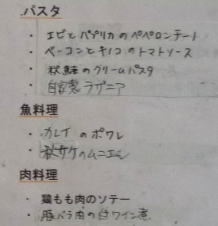 パスタ
・ エビとパプリカのペペロンチーノ
・ ベーコンとキノコのトマトソース
・ 秋鮭のクリームパスタ
・ 自家製ラザニア
魚料理
・ カレイのポワレ
・ 秋サケのムニエル
肉料理
・ 鶏もも肉のソテー
・ 豚バラ肉の白ワイン煮